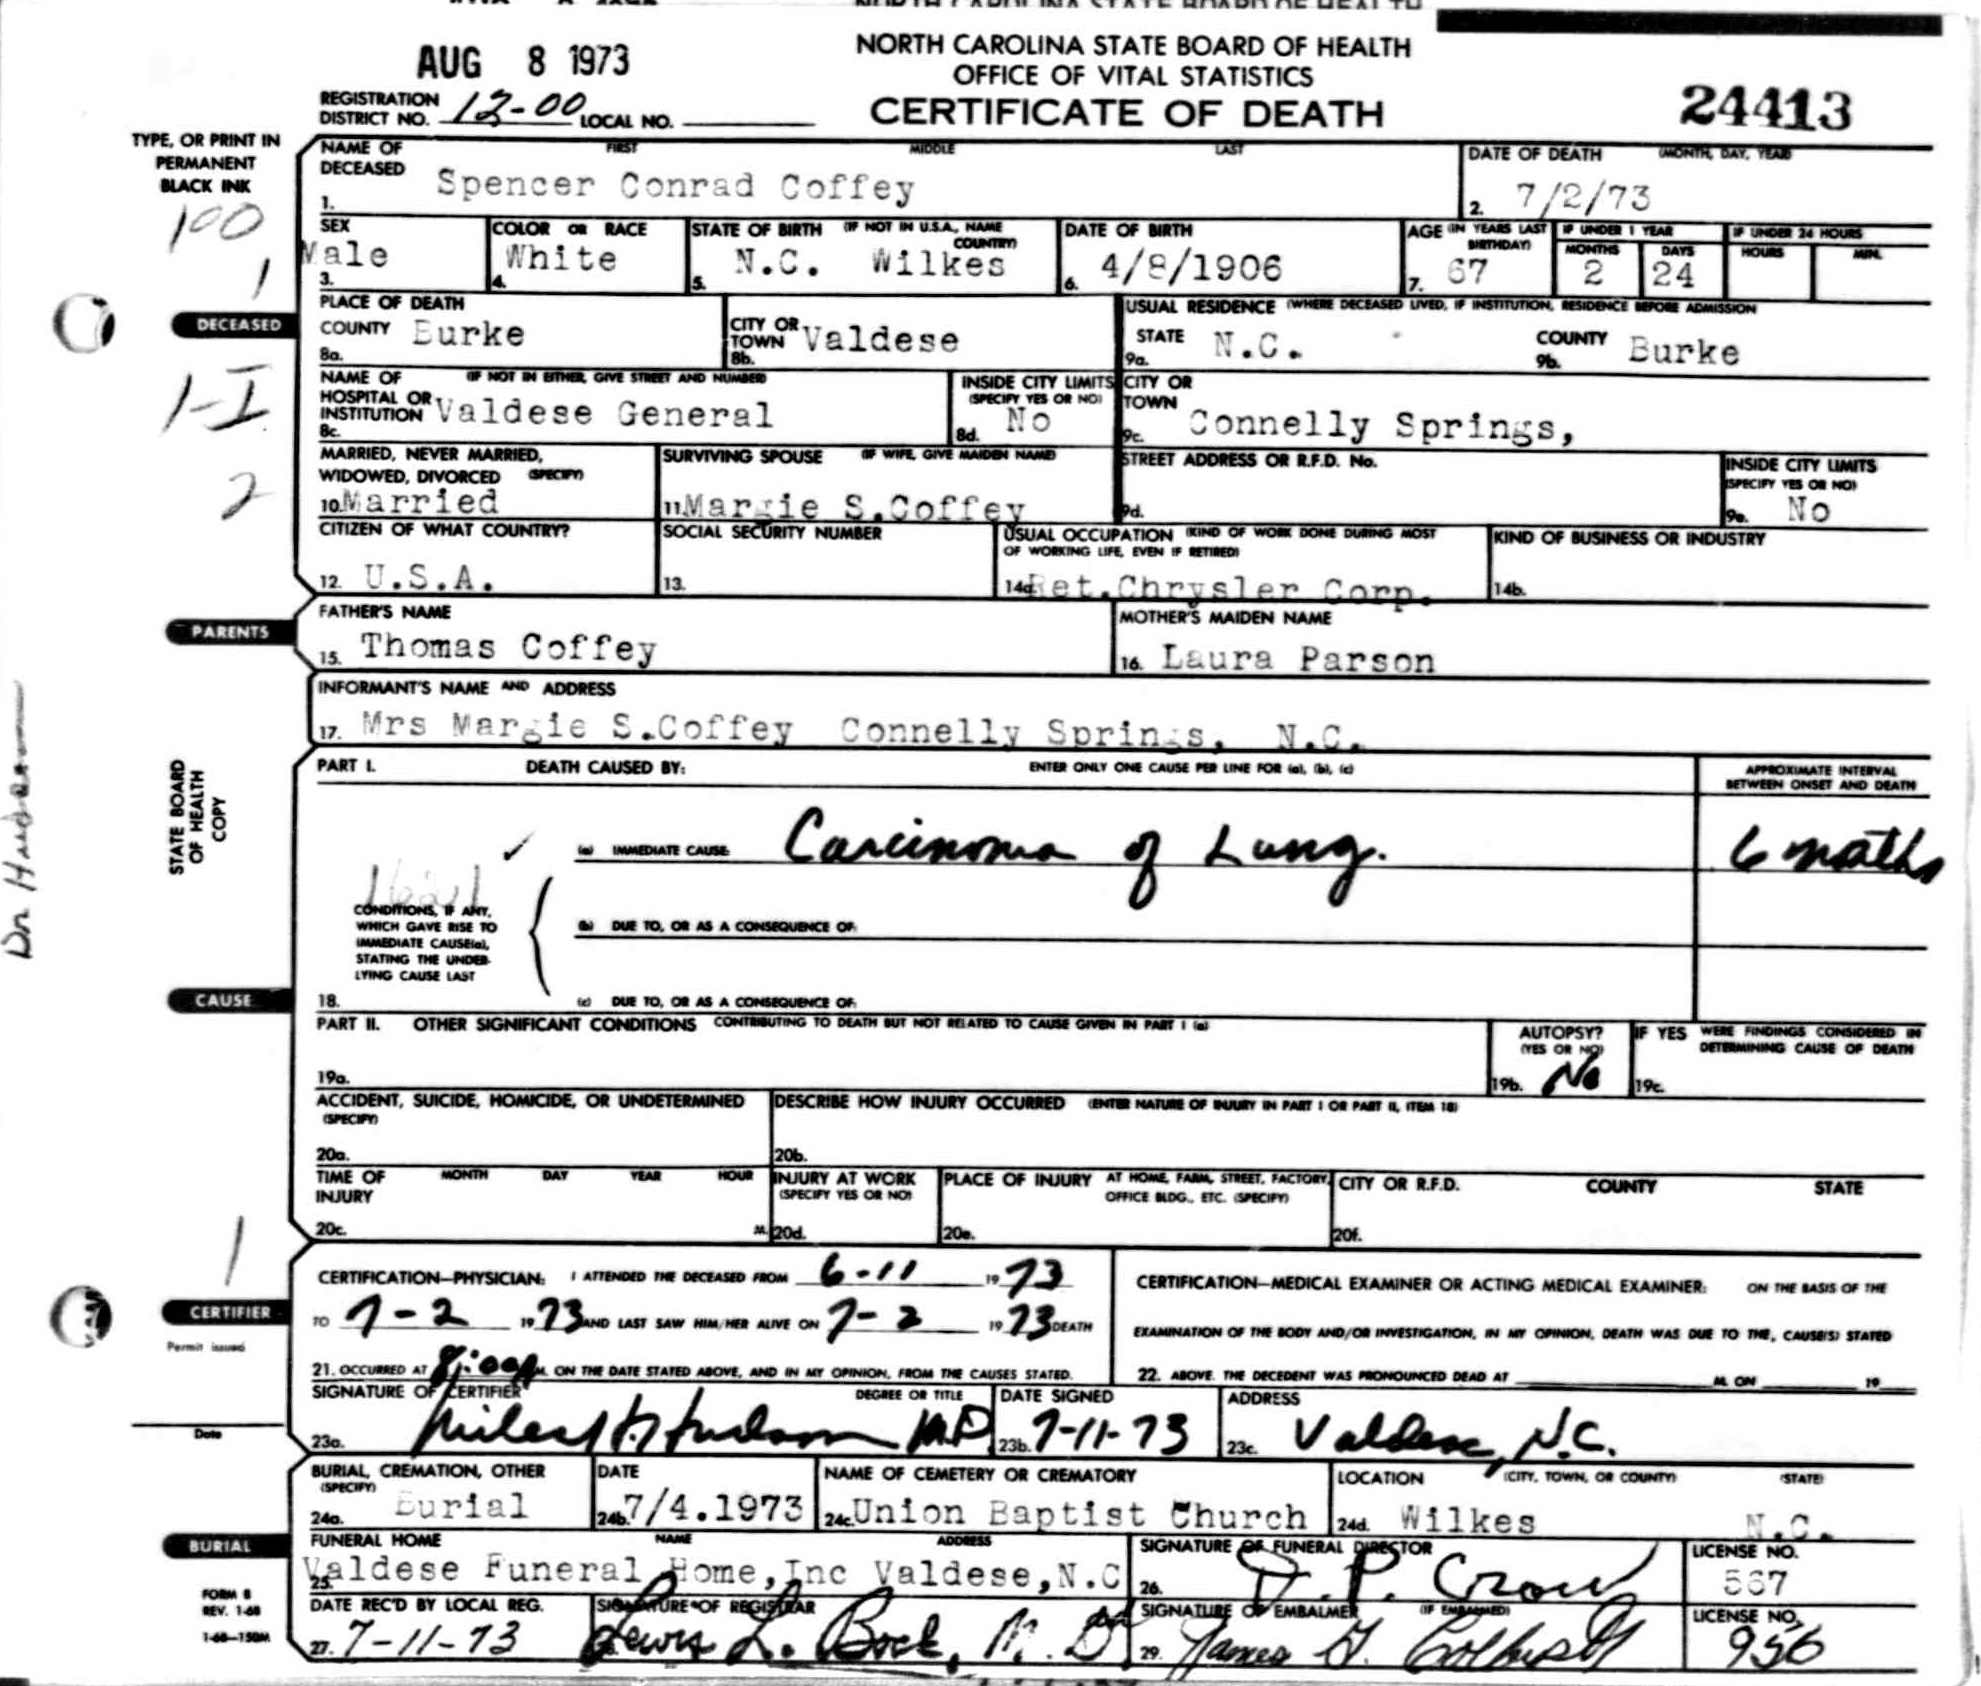 NORTH CAROLINA STATE BOARD OF HEALTH
AUG 8 1973
NORTH CAROLINA STATE BOARD OF HEALTH
OFFICE OF VITAL STATISTICS
CERTIFICATE OF DEATH
24413
REGISTRATION DISTRICT NO. 12-00 LOCAL NO.
TYPE, OR PRINT IN
PERMANENT
BLACK INK
100
1
DECEASED
1-I
2
NAME OF DECEASED FIRST MIDDLE LAST
1. Spencer Conrad Coffey
DATE OF DEATH (MONTH, DAY, YEAR)
2. 7/2/73
SEX
3. Male
COLOR OR RACE
4. White
STATE OF BIRTH (IF NOT IN U.S.A., NAME COUNTRY)
5. N.C. Wilkes
DATE OF BIRTH
6. 4/8/1906
AGE (IN YEARS LAST BIRTHDAY)
7. 67
IF UNDER 1 YEAR
MONTHS 2 DAYS 24
IF UNDER 24 HOURS
HOURS MIN.
PLACE OF DEATH
COUNTY Burke
8a.
CITY OR TOWN Valdese
8b.
USUAL RESIDENCE (WHERE DECEASED LIVED, IF INSTITUTION, RESIDENCE BEFORE ADMISSION
STATE N.C.
9a.
COUNTY Burke
9b.
NAME OF HOSPITAL OR INSTITUTION (IF NOT IN EITHER, GIVE STREET AND NUMBER)
8c. Valdese General
INSIDE CITY LIMITS (SPECIFY YES OR NO)
8d. No
CITY OR TOWN
9c. Connelly Springs,
MARRIED, NEVER MARRIED, WIDOWED, DIVORCED (SPECIFY)
10. Married
SURVIVING SPOUSE (IF WIFE, GIVE MAIDEN NAME)
11. Margie S.Coffey
STREET ADDRESS OR R.F.D. No.
9d.
INSIDE CITY LIMITS (SPECIFY YES OR NO)
9e. No
CITIZEN OF WHAT COUNTRY?
12. U.S.A.
SOCIAL SECURITY NUMBER
13.
USUAL OCCUPATION (KIND OF WORK DONE DURING MOST OF WORKING LIFE, EVEN IF RETIRED)
14a. Ret.Chrysler Corp.
KIND OF BUSINESS OR INDUSTRY
14b.
PARENTS
FATHER'S NAME
15. Thomas Coffey
MOTHER'S MAIDEN NAME
16. Laura Parson
INFORMANT'S NAME AND ADDRESS
17. Mrs Margie S.Coffey Connelly Springs, N.C.
STATE BOARD
OF HEALTH
COPY
Dr Hudson
PART I. DEATH CAUSED BY: ENTER ONLY ONE CAUSE PER LINE FOR (a), (b), (c)
APPROXIMATE INTERVAL
BETWEEN ONSET AND DEATH
(a) IMMEDIATE CAUSE: Carcinoma of Lung.
6 months
1621
CONDITIONS, IF ANY,
WHICH GAVE RISE TO
IMMEDIATE CAUSE(a),
STATING THE UNDER-
LYING CAUSE LAST
(b) DUE TO, OR AS A CONSEQUENCE OF:
CAUSE
18. (c) DUE TO, OR AS A CONSEQUENCE OF:
PART II. OTHER SIGNIFICANT CONDITIONS CONTRIBUTING TO DEATH BUT NOT RELATED TO CAUSE GIVEN IN PART I (a)
19a.
AUTOPSY? (YES OR NO)
19b. No
IF YES WERE FINDINGS CONSIDERED IN DETERMINING CAUSE OF DEATH
19c.
ACCIDENT, SUICIDE, HOMICIDE, OR UNDETERMINED (SPECIFY)
20a.
DESCRIBE HOW INJURY OCCURRED (ENTER NATURE OF INJURY IN PART I OR PART II, ITEM 18)
20b.
TIME OF INJURY MONTH DAY YEAR HOUR
20c. M.
INJURY AT WORK (SPECIFY YES OR NO)
20d.
PLACE OF INJURY AT HOME, FARM, STREET, FACTORY, OFFICE BLDG., ETC. (SPECIFY)
20e.
CITY OR R.F.D. COUNTY STATE
20f.
1
CERTIFIER
Permit issued
Date
CERTIFICATION—PHYSICIAN: I ATTENDED THE DECEASED FROM 6-11 1973
TO 7-2 1973 AND LAST SAW HIM/HER ALIVE ON 7-2 1973 DEATH
21. OCCURRED AT 8:00 M. ON THE DATE STATED ABOVE, AND IN MY OPINION, FROM THE CAUSES STATED.
CERTIFICATION—MEDICAL EXAMINER OR ACTING MEDICAL EXAMINER: ON THE BASIS OF THE
EXAMINATION OF THE BODY AND/OR INVESTIGATION, IN MY OPINION, DEATH WAS DUE TO THE, CAUSE(S) STATED
22. ABOVE. THE DECEDENT WAS PRONOUNCED DEAD AT M. ON 19
SIGNATURE OF CERTIFIER DEGREE OR TITLE
23a. Miles H. Hudson M.D.
DATE SIGNED
23b. 7-11-73
ADDRESS
23c. Valdese, N.C.
BURIAL, CREMATION, OTHER (SPECIFY)
24a. Burial
DATE
24b. 7/4.1973
NAME OF CEMETERY OR CREMATORY
24c. Union Baptist Church
LOCATION (CITY, TOWN, OR COUNTY) (STATE)
24d. Wilkes N.C.
BURIAL
FUNERAL HOME NAME ADDRESS
25. Valdese Funeral Home,Inc Valdese,N.C
SIGNATURE OF FUNERAL DIRECTOR
26. D. P. Crow
LICENSE NO.
567
FORM 8
REV. 1-68
1-68—150M
DATE REC'D BY LOCAL REG.
27. 7-11-73
SIGNATURE OF REGISTRAR
Lewis L. Bock, M.D.
SIGNATURE OF EMBALMER (IF EMBALMED)
29. James G.
LICENSE NO.
956